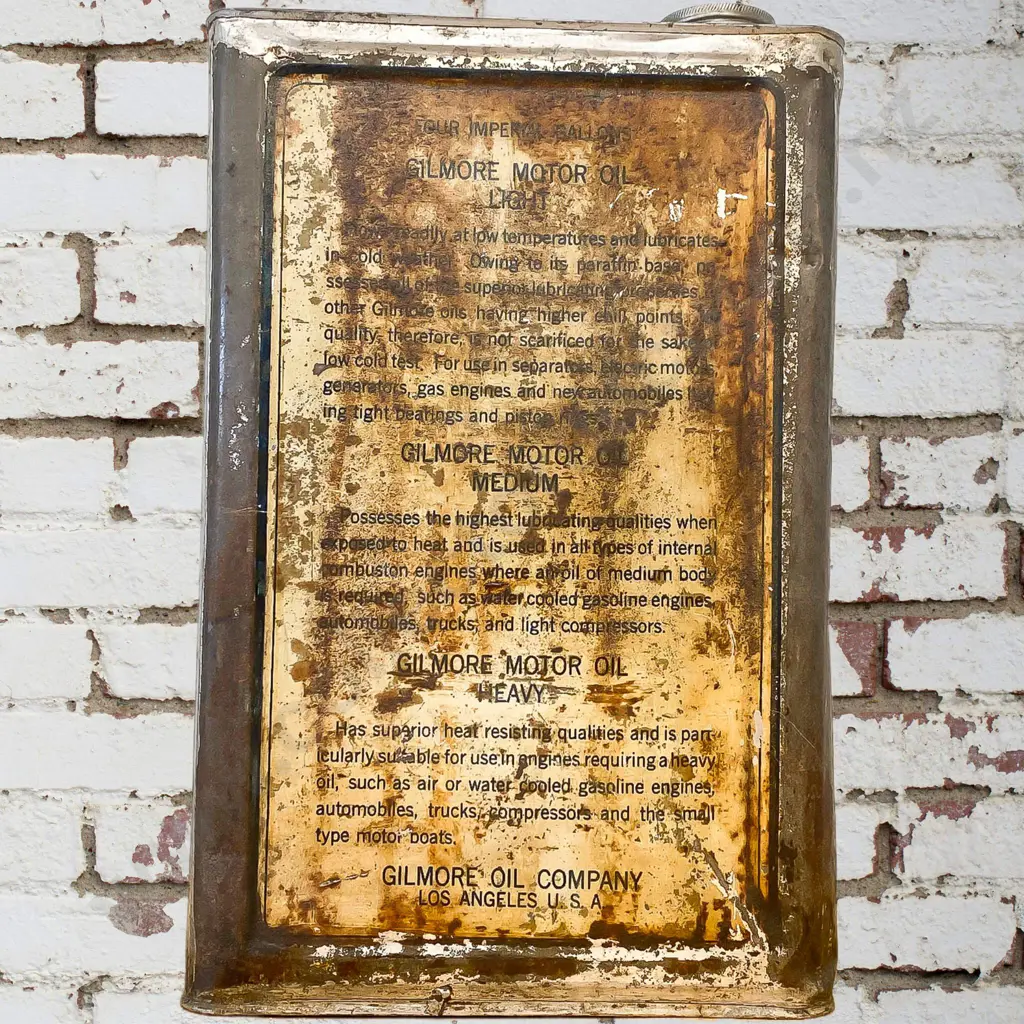 OUR IMPERIAL GALLONS
GILMORE MOTOR OIL
LIGHT
readily at low temperatures and lubricates
in cold weather. Owing to its paraffin base,
ssesses all of the superior lubricating properties
other Gilmore oils having higher chill points.
quality, therefore, is not scarificed for the sake
low cold test. For use in separators, electric motors,
generators, gas engines and new automobiles
ing tight bearings and piston
GILMORE MOTOR OIL
MEDIUM
Possesses the highest lubricating qualities when
exposed to heat and is used in all types of internal
combuston engines where an oil of medium body
is required, such as water cooled gasoline engines,
automobiles, trucks, and light compressors.
GILMORE MOTOR OIL
HEAVY
Has superior heat resisting qualities and is part-
icularly suitable for use in engines requiring a heavy
oil, such as air or water cooled gasoline engines,
automobiles, trucks, compressors and the small
type motor boats.
GILMORE OIL COMPANY
LOS ANGELES U.S.A.
.nz